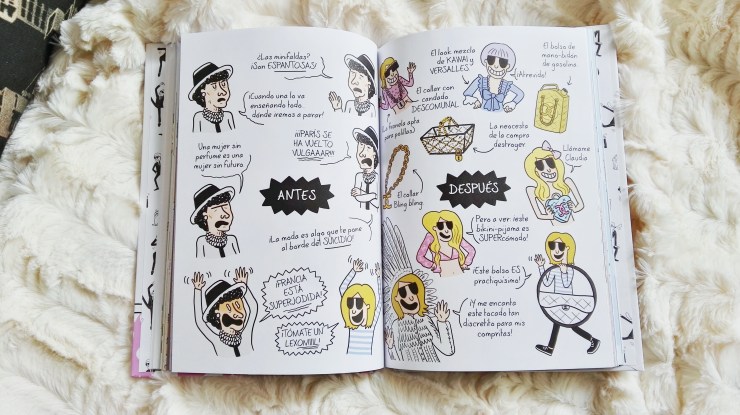 ¿Las minifaldas?
¡Son ESPANTOSAS!
¡Cuando una la va
enseñando todo,
dónde iremos a parar!
¡¡¡PARÍS SE
HA VUELTO
VULGAAAR!!!
Una mujer sin
perfume es una
mujer sin futuro
ANTES
¡La moda es algo que te pone
al borde del SUICIDIO!
¡FRANCIA
ESTÁ
SUPERJODIDA!
¡TÓMATE UN
LEXOMIIIL!
El look mezcla
de KAWAI y
VERSALLES
¡Atrevida!
El bolso de
mano-bidón
de gasolina
El collar con
candado
DESCOMUNAL
para palillos)
La neocesta
de la compra
destroyer
Llámame
Claudia
El collar
Bling bling
DESPUÉS
Pero a ver: ¡este
bikini-pijama es
SUPERcómodo!
¡Este bolso ES
practiquísimo!
¡Y me encanta
este tocado tan
discreto para mis
compritas!